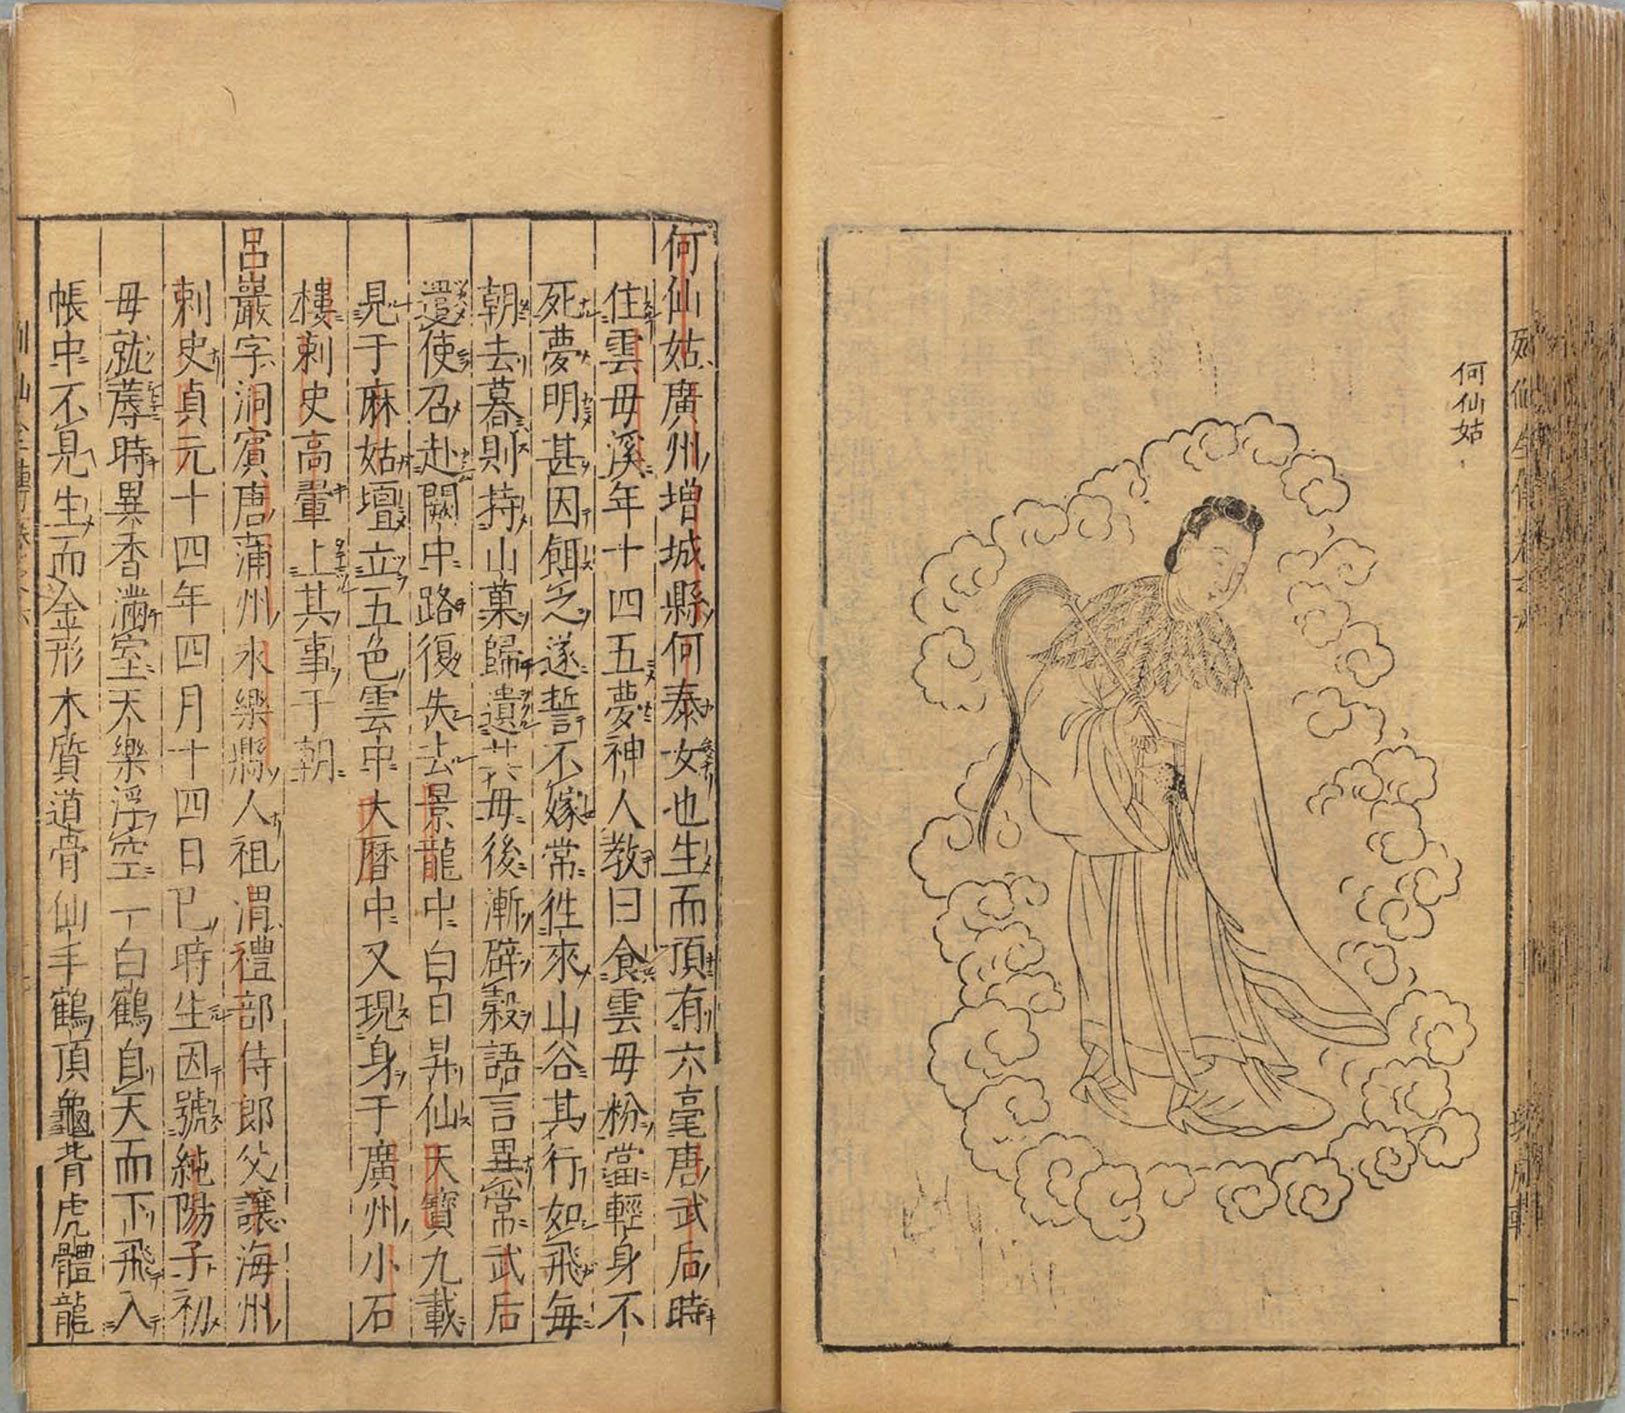 何仙姑
何仙姑廣州増城縣何泰女也生而頂有六毫唐武后時
住雲母溪年十四五夢神人教曰食雲母粉當輕身不
死夢明甚因餌之遂誓不嫁常徃來山谷其行如飛毎
朝去暮則持山菓歸遺其母後漸辟糓語言異常武后
遣使召赴闕中路復失去景龍中白日昇仙天寶九載
見于麻姑壇立五色雲中大曆中又現身于廣州小石
樓刺史高翬上其事于朝
呂巖字洞賓唐蒲州永樂縣人祖渭禮部侍郎父讓海州
刺史貞元十四年四月十四日巳時生因號純陽子初
母就蓐時異香滿室天樂浮空一白鶴自天而下飛入
帳中不見生而金形木質道骨仙手鶴頂龜背虎體龍